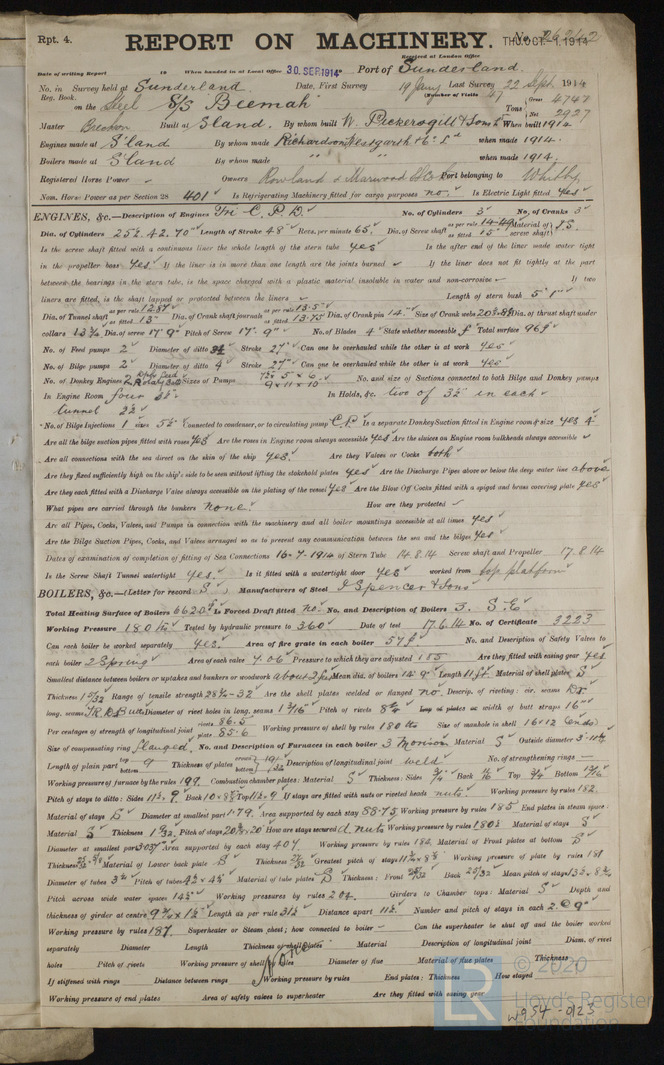 Rpt. 4.
REPORT ON MACHINERY.
No. 26212
THU. OCT. 1. 1914
Received at London Office
Date of writing Report 19 When handed in at Local Office 30. SEP. 1914 Port of Sunderland.
No. in Survey held at Sunderland Date, First Survey 19 Jany Last Survey 22 Sept. 1914
Reg. Book. (Number of Visits 47
on the Steel S/S Beemah Tons Gross 4747 Net 2927
Master Built at S'land. By whom built W. Pickersgill & Sons Ld When built 1914
Engines made at S'land By whom made Richardsons Westgarth & Co Ld when made 1914.
Boilers made at S'land By whom made " " when made 1914.
Registered Horse Power Owners Rowland & Marwood Port belonging to Whitby
Nom. Horse Power as per Section 28 401 Is Refrigerating Machinery fitted for cargo purposes no. Is Electric Light fitted yes
ENGINES, &c.—Description of Engines Tri C. P. D. No. of Cylinders 3 No. of Cranks 3
Dia. of Cylinders 25½. 42. 70" Length of Stroke 48" Revs. per minute 65. Dia. of Screw shaft as per rule 14.49 as fitted 15" Material of screw shaft I.S.
Is the screw shaft fitted with a continuous liner the whole length of the stern tube yes Is the after end of the liner made water tight
in the propeller boss yes If the liner is in more than one length are the joints burned If the liner does not fit tightly at the part
between the bearings in the stern tube, is the space charged with a plastic material insoluble in water and non-corrosive If two
liners are fitted, is the shaft lapped or protected between the liners Length of stern bush 5' 1"
Dia. of Tunnel shaft as per rule 12.87 as fitted 13" Dia. of Crank shaft journals as per rule 13.5 as fitted 13.75 Dia. of Crank pin 14" Size of Crank webs Dia. of thrust shaft under
collars 13¾ Dia. of screw 17' 9" Pitch of Screw 17' 9" No. of Blades 4 State whether moveable Total surface 96
No. of Feed pumps 2 Diameter of ditto Stroke 27" Can one be overhauled while the other is at work yes
No. of Bilge pumps 2 Diameter of ditto 4 Stroke 27" Can one be overhauled while the other is at work yes
No. of Donkey Engines 2 Sizes of Pumps 9 x 11 x 10 No. and size of Suctions connected to both Bilge and Donkey pumps
In Engine Room four 3½" In Holds, &c. two of 3½ in each
tunnel 2½"
No. of Bilge Injections 1 sizes 5½" Connected to condenser, or to circulating pump C.P. Is a separate Donkey Suction fitted in Engine room & size yes 4"
Are all the bilge suction pipes fitted with roses yes Are the roses in Engine room always accessible yes Are the sluices on Engine room bulkheads always accessible
Are all connections with the sea direct on the skin of the ship yes. Are they Valves or Cocks both
Are they fixed sufficiently high on the ship's side to be seen without lifting the stokehold plates yes Are the Discharge Pipes above or below the deep water line above
Are they each fitted with a Discharge Valve always accessible on the plating of the vessel yes Are the Blow Off Cocks fitted with a spigot and brass covering plate yes
What pipes are carried through the bunkers none. How are they protected
Are all Pipes, Cocks, Valves, and Pumps in connection with the machinery and all boiler mountings accessible at all times yes
Are the Bilge Suction Pipes, Cocks, and Valves arranged so as to prevent any communication between the sea and the bilges yes
Dates of examination of completion of fitting of Sea Connections 16-7-1914 of Stern Tube 14.8.14 Screw shaft and Propeller 17.8.14
Is the Screw Shaft Tunnel watertight yes. Is it fitted with a watertight door yes worked from top platform
BOILERS, &c.—(Letter for record S) Manufacturers of Steel J. Spencer & Sons
Total Heating Surface of Boilers 6620 Is Forced Draft fitted no. No. and Description of Boilers 3. S.E.
Working Pressure 180 lbs Tested by hydraulic pressure to 360 Date of test 17.6.14 No. of Certificate 3223
Can each boiler be worked separately yes. Area of fire grate in each boiler 57 No. and Description of Safety Valves to
each boiler 2 Spring Area of each valve 7.06 Pressure to which they are adjusted 185 Are they fitted with easing gear yes
Smallest distance between boilers or uptakes and bunkers or woodwork about 2 ft Mean dia. of boilers 14' 9" Length 11 ft. Material of shell plates S
Thickness 1 5/32 Range of tensile strength 28½-32 Are the shell plates welded or flanged no. Descrip. of riveting: cir. seams D.R.
long. seams T.R.D. Butt Diameter of rivet holes in long. seams 1 3/16" Pitch of rivets 8¼ Lap of plates or width of butt straps 16"
Per centages of strength of longitudinal joint rivets 86.5 plate 85.6 Working pressure of shell by rules 180 lbs Size of manhole in shell 16 x 12 (ends)
Size of compensating ring flanged. No. and Description of Furnaces in each boiler 3 Morison Material S Outside diameter
Length of plain part top bottom 9 Thickness of plates crown bottom 19/32 Description of longitudinal joint weld No. of strengthening rings
Working pressure of furnace by the rules 199 Combustion chamber plates: Material S Thickness: Sides ¾ Back 11/16 Top ¾ Bottom
Pitch of stays to ditto: Sides 11½ x 9. Back Top 11½ x 9 If stays are fitted with nuts or riveted heads nuts. Working pressure by rules 182.
Material of stays S Diameter at smallest part 1.79. Area supported by each stay 88.75 Working pressure by rules 185 End plates in steam space:
Material S Thickness 1 5/32. Pitch of stays How are stays secured d. nuts Working pressure by rules 180½ Material of stays S
Diameter at smallest part Area supported by each stay 407 Working pressure by rules 182. Material of Front plates at bottom S
Thickness Material of Lower back plate S Thickness Greatest pitch of stays Working pressure of plate by rules 181
Diameter of tubes 3½ Pitch of tubes 4½ x 4½ Material of tube plates S Thickness: Front Back 25/32 Mean pitch of stays
Pitch across wide water spaces 14½" Working pressures by rules 204. Girders to Chamber tops: Material S Depth and
thickness of girder at centre 9¾ x 1½ Length as per rule 31½ Distance apart 11½. Number and pitch of stays in each 2 @ 9"
Working pressure by rules 187. Superheater or Steam chest; how connected to boiler Can the superheater be shut off and the boiler worked
separately Diameter Length Thickness of shell plates Material Description of longitudinal joint Diam. of rivet
holes Pitch of rivets Working pressure of shell by rules Diameter of flue Material of flue plates Thickness
None
If stiffened with rings Distance between rings Working pressure by rules End plates: Thickness How stayed
Working pressure of end plates Area of safety valves to superheater Are they fitted with easing gear
© 2020
Lloyd's Register
Foundation
W954-0123